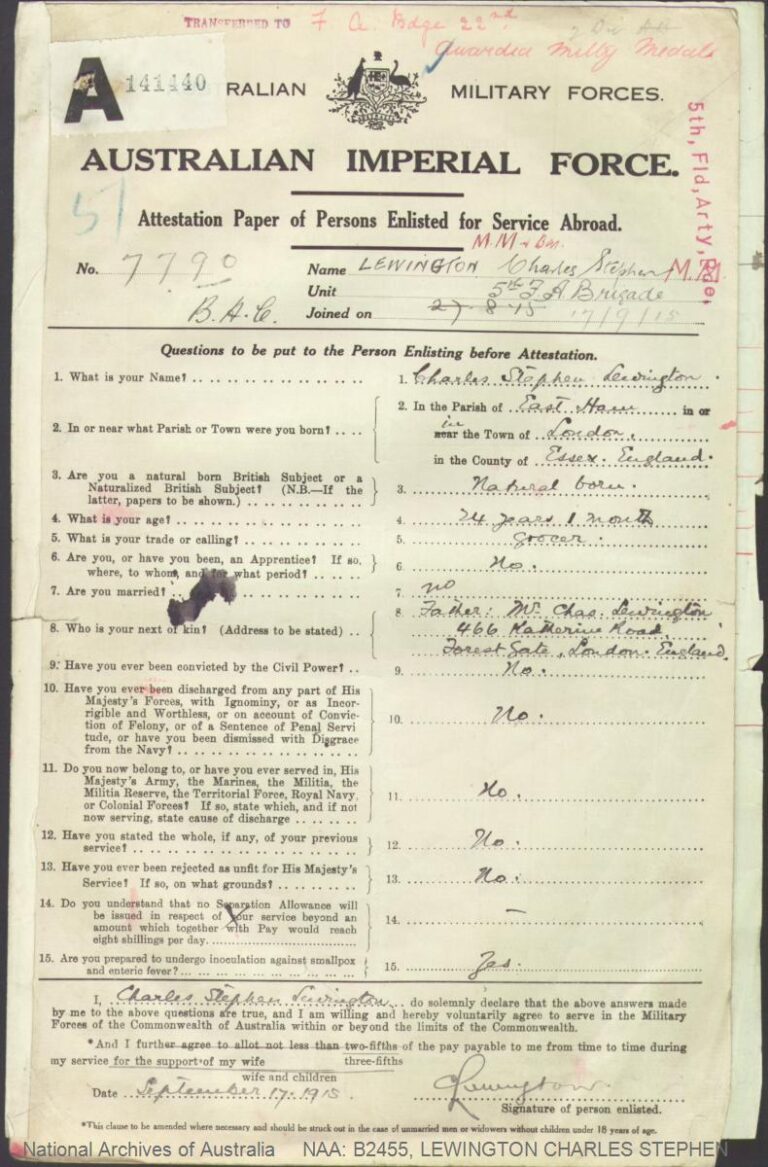 TRANSFERRED TO F. A. Bdge 22nd
Awarded Milty Medal
A 141440
RALIAN MILITARY FORCES.
AUSTRALIAN IMPERIAL FORCE.
5th, Fld, Arty, Bde,
51
Attestation Paper of Persons Enlisted for Service Abroad.
M.M & Bar
No. 7790 Name LEWINGTON Charles Stephen M.M
Unit 5th F A Brigade
B.A.C. Joined on 27-8-15 17/9/15
Questions to be put to the Person Enlisting before Attestation.
1. What is your Name? 1. Charles Stephen Lewington.
2. In or near what Parish or Town were you born? 2. In the Parish of East Ham in or
in near the Town of London,
in the County of Essex. England.
3. Are you a natural born British Subject or a
Naturalized British Subject? (N.B.—If the
latter, papers to be shown.) 3. Natural born.
4. What is your age? 4. 24 years 1 month
5. What is your trade or calling? 5. Grocer.
6. Are you, or have you been, an Apprentice? If so,
where, to whom, and for what period? 6. No.
7. Are you married? 7. no
8. Who is your next of kin? (Address to be stated) 8. Father: Mr Chas. Lewington
466 Katherine Road,
Forest Gate, London. England.
9. Have you ever been convicted by the Civil Power? 9. No.
10. Have you ever been discharged from any part of His
Majesty's Forces, with Ignominy, or as Incor-
rigible and Worthless, or on account of Convic-
tion of Felony, or of a Sentence of Penal Servi
tude, or have you been dismissed with Disgrace
from the Navy? 10. No.
11. Do you now belong to, or have you ever served in, His
Majesty's Army, the Marines, the Militia, the
Militia Reserve, the Territorial Force, Royal Navy,
or Colonial Forces? If so, state which, and if not
now serving, state cause of discharge 11. No.
12. Have you stated the whole, if any, of your previous
service? 12. No.
13. Have you ever been rejected as unfit for His Majesty's
Service? If so, on what grounds? 13. No.
14. Do you understand that no Separation Allowance will
be issued in respect of your service beyond an
amount which together with Pay would reach
eight shillings per day. 14. –
15. Are you prepared to undergo inoculation against smallpox
and enteric fever? 15. Yes.
I, Charles Stephen Lewington do solemnly declare that the above answers made
by me to the above questions are true, and I am willing and hereby voluntarily agree to serve in the Military
Forces of the Commonwealth of Australia within or beyond the limits of the Commonwealth.
*And I further agree to allot not less than two-fifths of the pay payable to me from time to time during
three-fifths
my service for the support of my wife
wife and children
Date September 17. 1915 CLewington
Signature of person enlisted.
*This clause to be amended where necessary and should be struck out in the case of unmarried men or widowers without children under 18 years of age.
National Archives of Australia NAA: B2455, LEWINGTON CHARLES STEPHEN